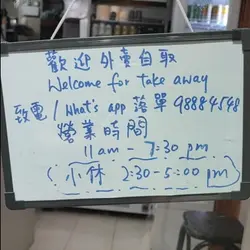 歡迎外賣自取
Welcome for take away
致電/What's app 落單 98884548
營業時間
11am - 7:30 pm
(小休 2:30-5:00 pm)